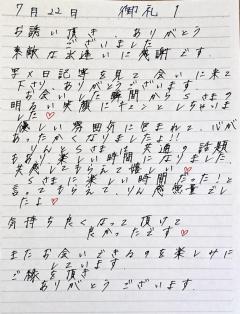 7月22日 御礼 1
お誘い頂き、ありがとう
ございました
素敵な出逢いに感謝です。
写メ日記等を見て会いに来て
下さり、ありがとうございます
お会いした瞬間からSさまの
明るい笑顔にキュンとしちゃいま
した♡
優しい雰囲気に包まれて、心が
あったかくなりましたよ!!
りんとSさまに共通の話題
もあり、楽しい時間になりました。
共感してもらえて嬉しい♡
Sさまに楽しい時間だった!と
言ってもらえて、りん感無量でし
たよ♡
気持ち良くなって頂けて
良かったです♡
またお会いできるのを楽しみに
しています
ご縁を頂き
ありがとうございます。